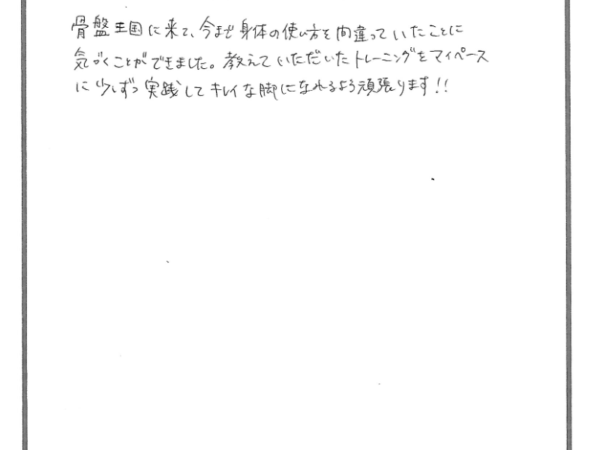 骨盤王国に来て、今まで身体の使い方を間違っていたことに
気づくことができました。教えていただいたトレーニングをマイペース
に少しずつ実践してキレイな脚になれるよう頑張ります!!